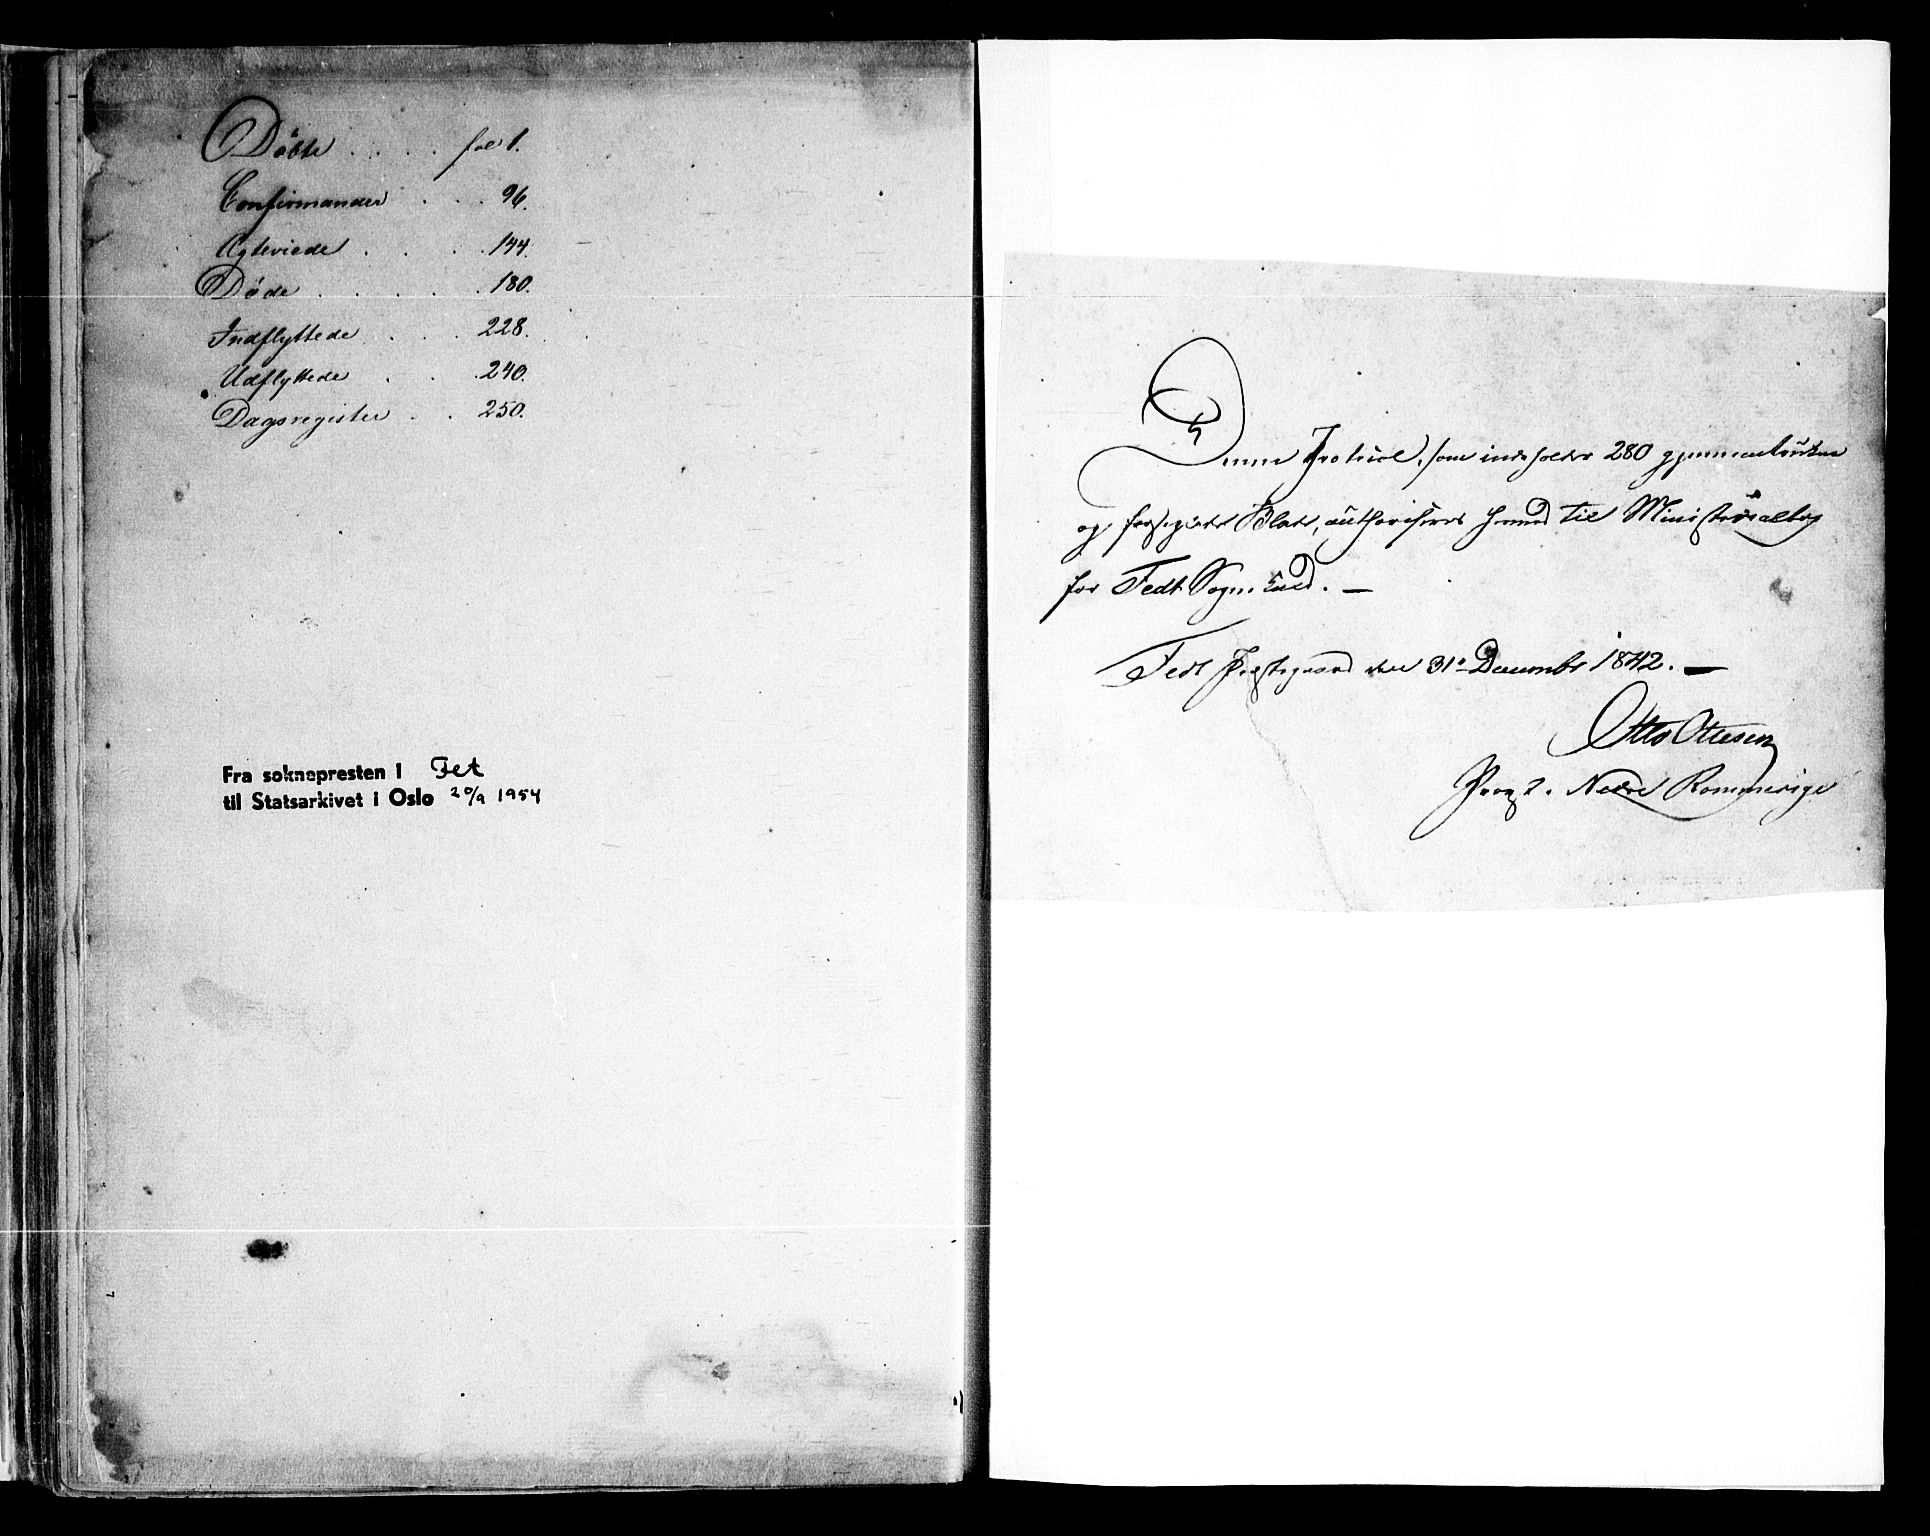 Døbte . . . . fol 1.
Confirmander . . . 96.
Ægteviede . . . . 144.
Døde . . . . . 180.
Indflyttede . . . 228.
Udflyttede . . . 240.
Dagsregister . . 250.
Fra soknepresten i Fet
til Statsarkivet i Oslo 20/9 1954
Denne Protocol, som indeholder 280 gjennemtrukne
og forseglede Blade, authoriseres herved til Ministerialbog
for Fedt Sognekald. —
Fedt Præstegaard den 31te December 1842. —
Otto Ottesen
Provst i Nedre Rommerige